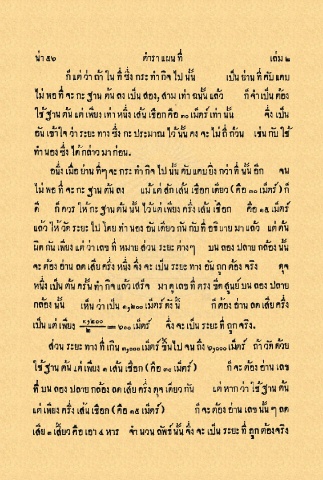 น่า ๕๖ ตำรา แผน ที่ เล่ม ๒
ก็ แต่ ว่า ถ้า ใน ที่ ซึ่ง กระ ทำ กิจ ไป นั้น เป็น ย่าน ที่ คับ แคบ
ไม่ พอ ที่ จะ กะ ฐาน ค้น ลง เป็น สอง, สาม เท่า ฉนั้น แล้ว ก็ จำ เป็น ต้อง
ใช้ ฐาน ค้น แต่ เพียง เท่า หนึ่ง เส้น เชือก คือ ๓๐ เม็ตร์ เท่า นั้น จึ่ง เป็น
อัน เข้า ใจ ว่า ระยะ ทาง ซึ่ง กะ ประมาณ ไว้ นั้น คง จะ ไม่ ถี่ ถ้วน เช่น กับ ใช้
ทำ นอง ซึ่ง ได้ กล่าว มา ก่อน.
อนึ่ง เมื่อ ย่าน ที่ๆ จะ กระ ทำ กิจ ไป นั้น คับ แคบ ยิ่ง กว่า ที่ นั้น อีก จน
ไม่ พอ ที่ จะ กะ ฐาน ค้น ลง แม้ แต่ สัก เส้น เชือก เดียว (คือ ๓๐ เม็ตร์) ก็
ดี ก็ ควร ให้ กะ ฐาน ค้น นั้น ไว้ แต่ เพียง ครึ่ง เส้น เชือก คือ ๑๕ เม็ตร์
แล้ว ให้ วัด ระยะ ไป โดย ทำ นอง อัน เดียว กัน กับ ที่ อธิ บาย มา แล้ว แต่ ค้น
ผิด กัน เพียง แต่ ว่า เลข ที่ หมาย ส่วน ระยะ ต่างๆ บน ลอง ปลาย กล้อง นั้น
จะ ต้อง อ่าน ลด เสีย ครึ่ง หนึ่ง จึ่ง จะ เป็น ระยะ ทาง อัน ถูก ต้อง จริง ดุจ
หนึ่ง เป็น คน ครั้น ทำ กิจ แล้ว เสร็จ มา ดู เลข ที่ ตรง ขีด ศูนย์ บน ลอง ปลาย
กล้อง นั้น เห็น ว่า เป็น ๑,๒๐๐ เม็ตร์ ดั่ง นี้ ก็ ต้อง อ่าน ลด เสีย ครึ่ง
เป็น แต่ เพียง ๑,๒๐๐/๒ = ๖๐๐ เม็ตร์ จึ่ง จะ เป็น ระยะ ที่ ถูก จริง.
ส่วน ระยะ ทาง ที่ เกิน ๑,๐๐๐ เม็ตร์ ขึ้น ไป จน ถึง ๒,๐๐๐ เม็ตร์ ถ้า วัด ด้วย
ใช้ ฐาน ค้น แต่ เพียง ๑ เส้น เชือก (คือ ๓๐ เม็ตร์) ก็ จะ ต้อง อ่าน เลข
ที่ บน ลอง ปลาย กล้อง ลด เสีย ครึ่ง ดุจ เดียว กัน แต่ หาก ว่า ใช้ ฐาน ค้น
แต่ เพียง ครึ่ง เส้น เชือก (คือ ๑๕ เม็ตร์) ก็ จะ ต้อง อ่าน เลข นั้นๆ ลด
เสีย ๓ เสี้ยว คือ เอา ๔ หาร จำ นวน ลัพธ์ นั้น จึ่ง จะ เป็น ระยะ ที่ ถูก ต้อง จริง